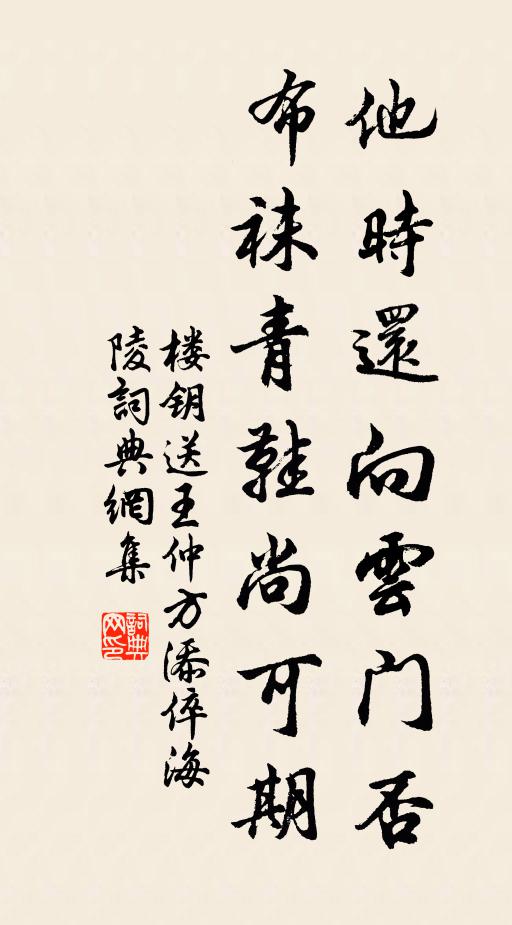 他時還向雲门否
布袜青鞋尚可期
楼钥送王仲方添倅海
陵詞典網集
詞典网印